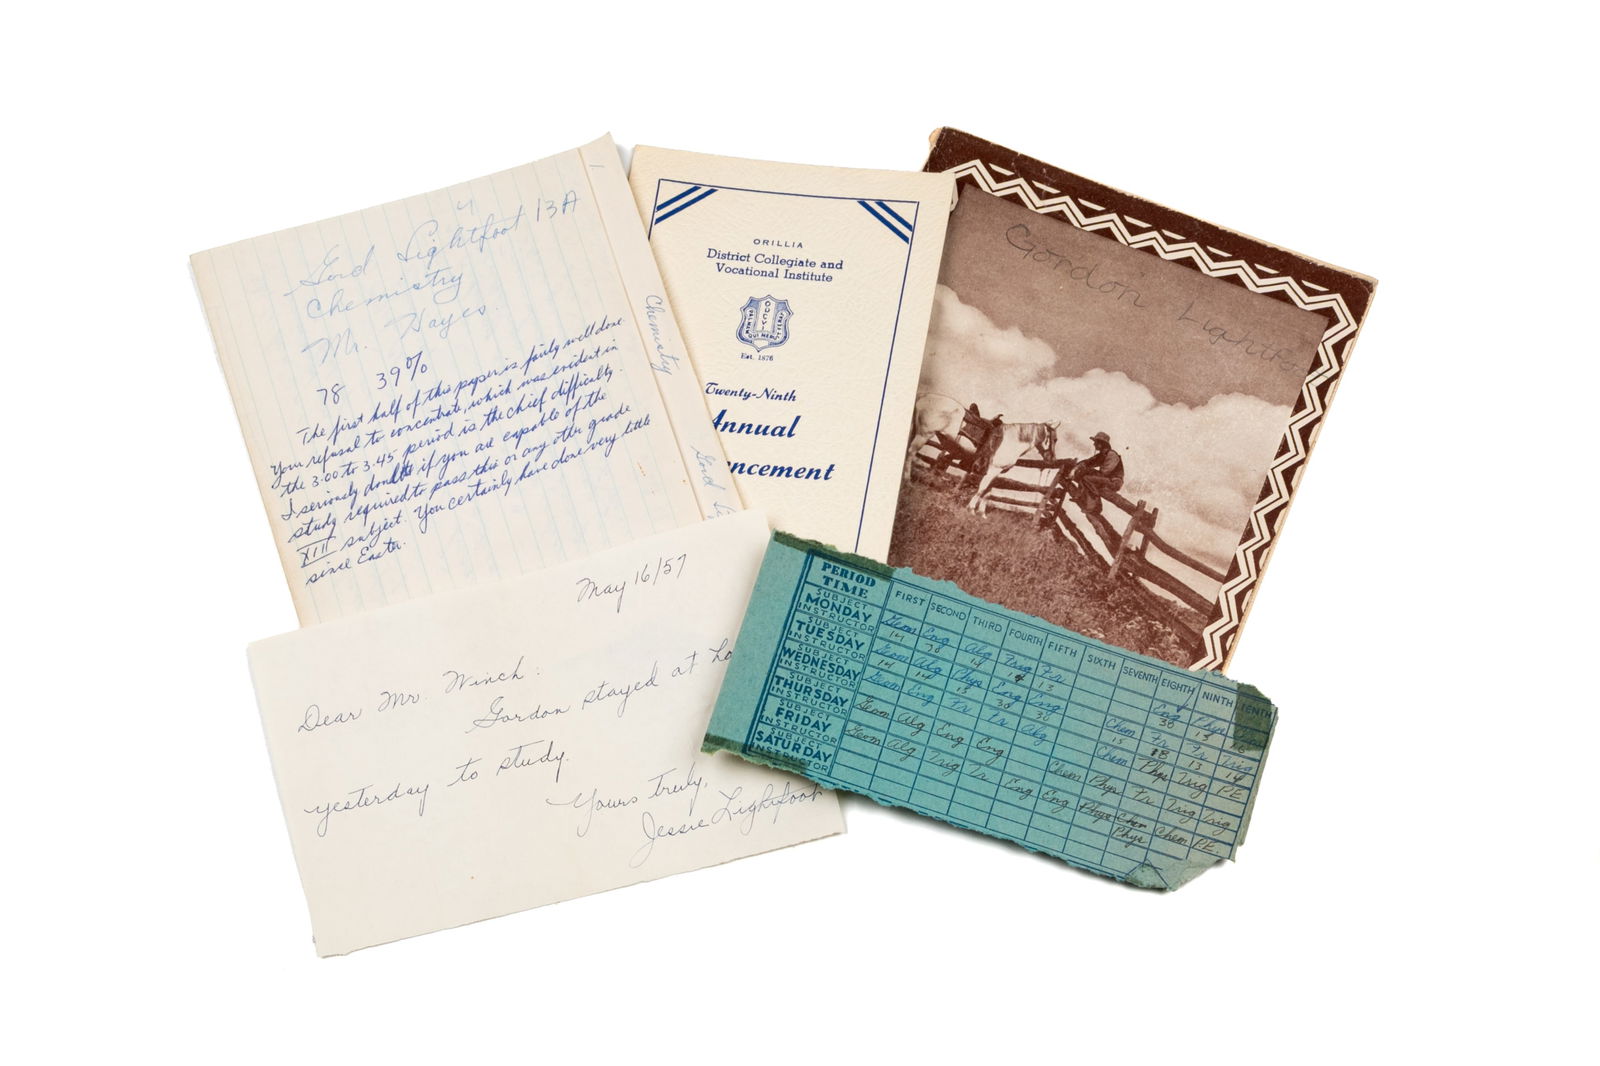 4
Gord Lightfoot 13A
Chemistry
Mr. Hayes.
78 39%
The first half of this paper is fairly well done.
Your refusal to concentrate, which was evident in
the 3.00 to 3.45 period is the chief difficulty.
I seriously doubt if you are capable of the
study required to pass this or any other grade
XIII subject. You certainly have done very little
since Easter.
1
Chemistry
Gord
ORILLIA
District Collegiate and
Vocational Institute
ODCVI
PALMAM QUI MERUIT FERAT
Est. 1876
Twenty-Ninth
Annual
ncement
Gordon Lightfoo
May 16/57
Dear Mr. Winch:
Gordon stayed at ho
yesterday to study.
Yours truly,
Jessie Lightfoot
PERIOD FIRST SECOND THIRD FOURTH FIFTH SIXTH SEVENTH EIGHTH NINTH TENTH
TIME
SUBJECT Geom Eng Alg Trig Fr Eng Phys
MONDAY
INSTRUCTOR 14 78 14 14 13 30 13 16
SUBJECT Geom Alg Phys Eng Eng Chem Fr Fr Trig
TUESDAY
INSTRUCTOR 14 14 13 30 30 15 18 13 14
SUBJECT Geom Eng Fr Fr Alg Chem Phys Trig P.E
WEDNESDAY
INSTRUCTOR
SUBJECT Geom Alg Eng Eng Chem Phys Fr Trig Trig
THURSDAY
INSTRUCTOR
SUBJECT Geom Alg Trig Fr Eng Eng Phys Chem Chem P.E.
FRIDAY Phys
INSTRUCTOR
SUBJECT
SATURDAY
INSTRUCTOR